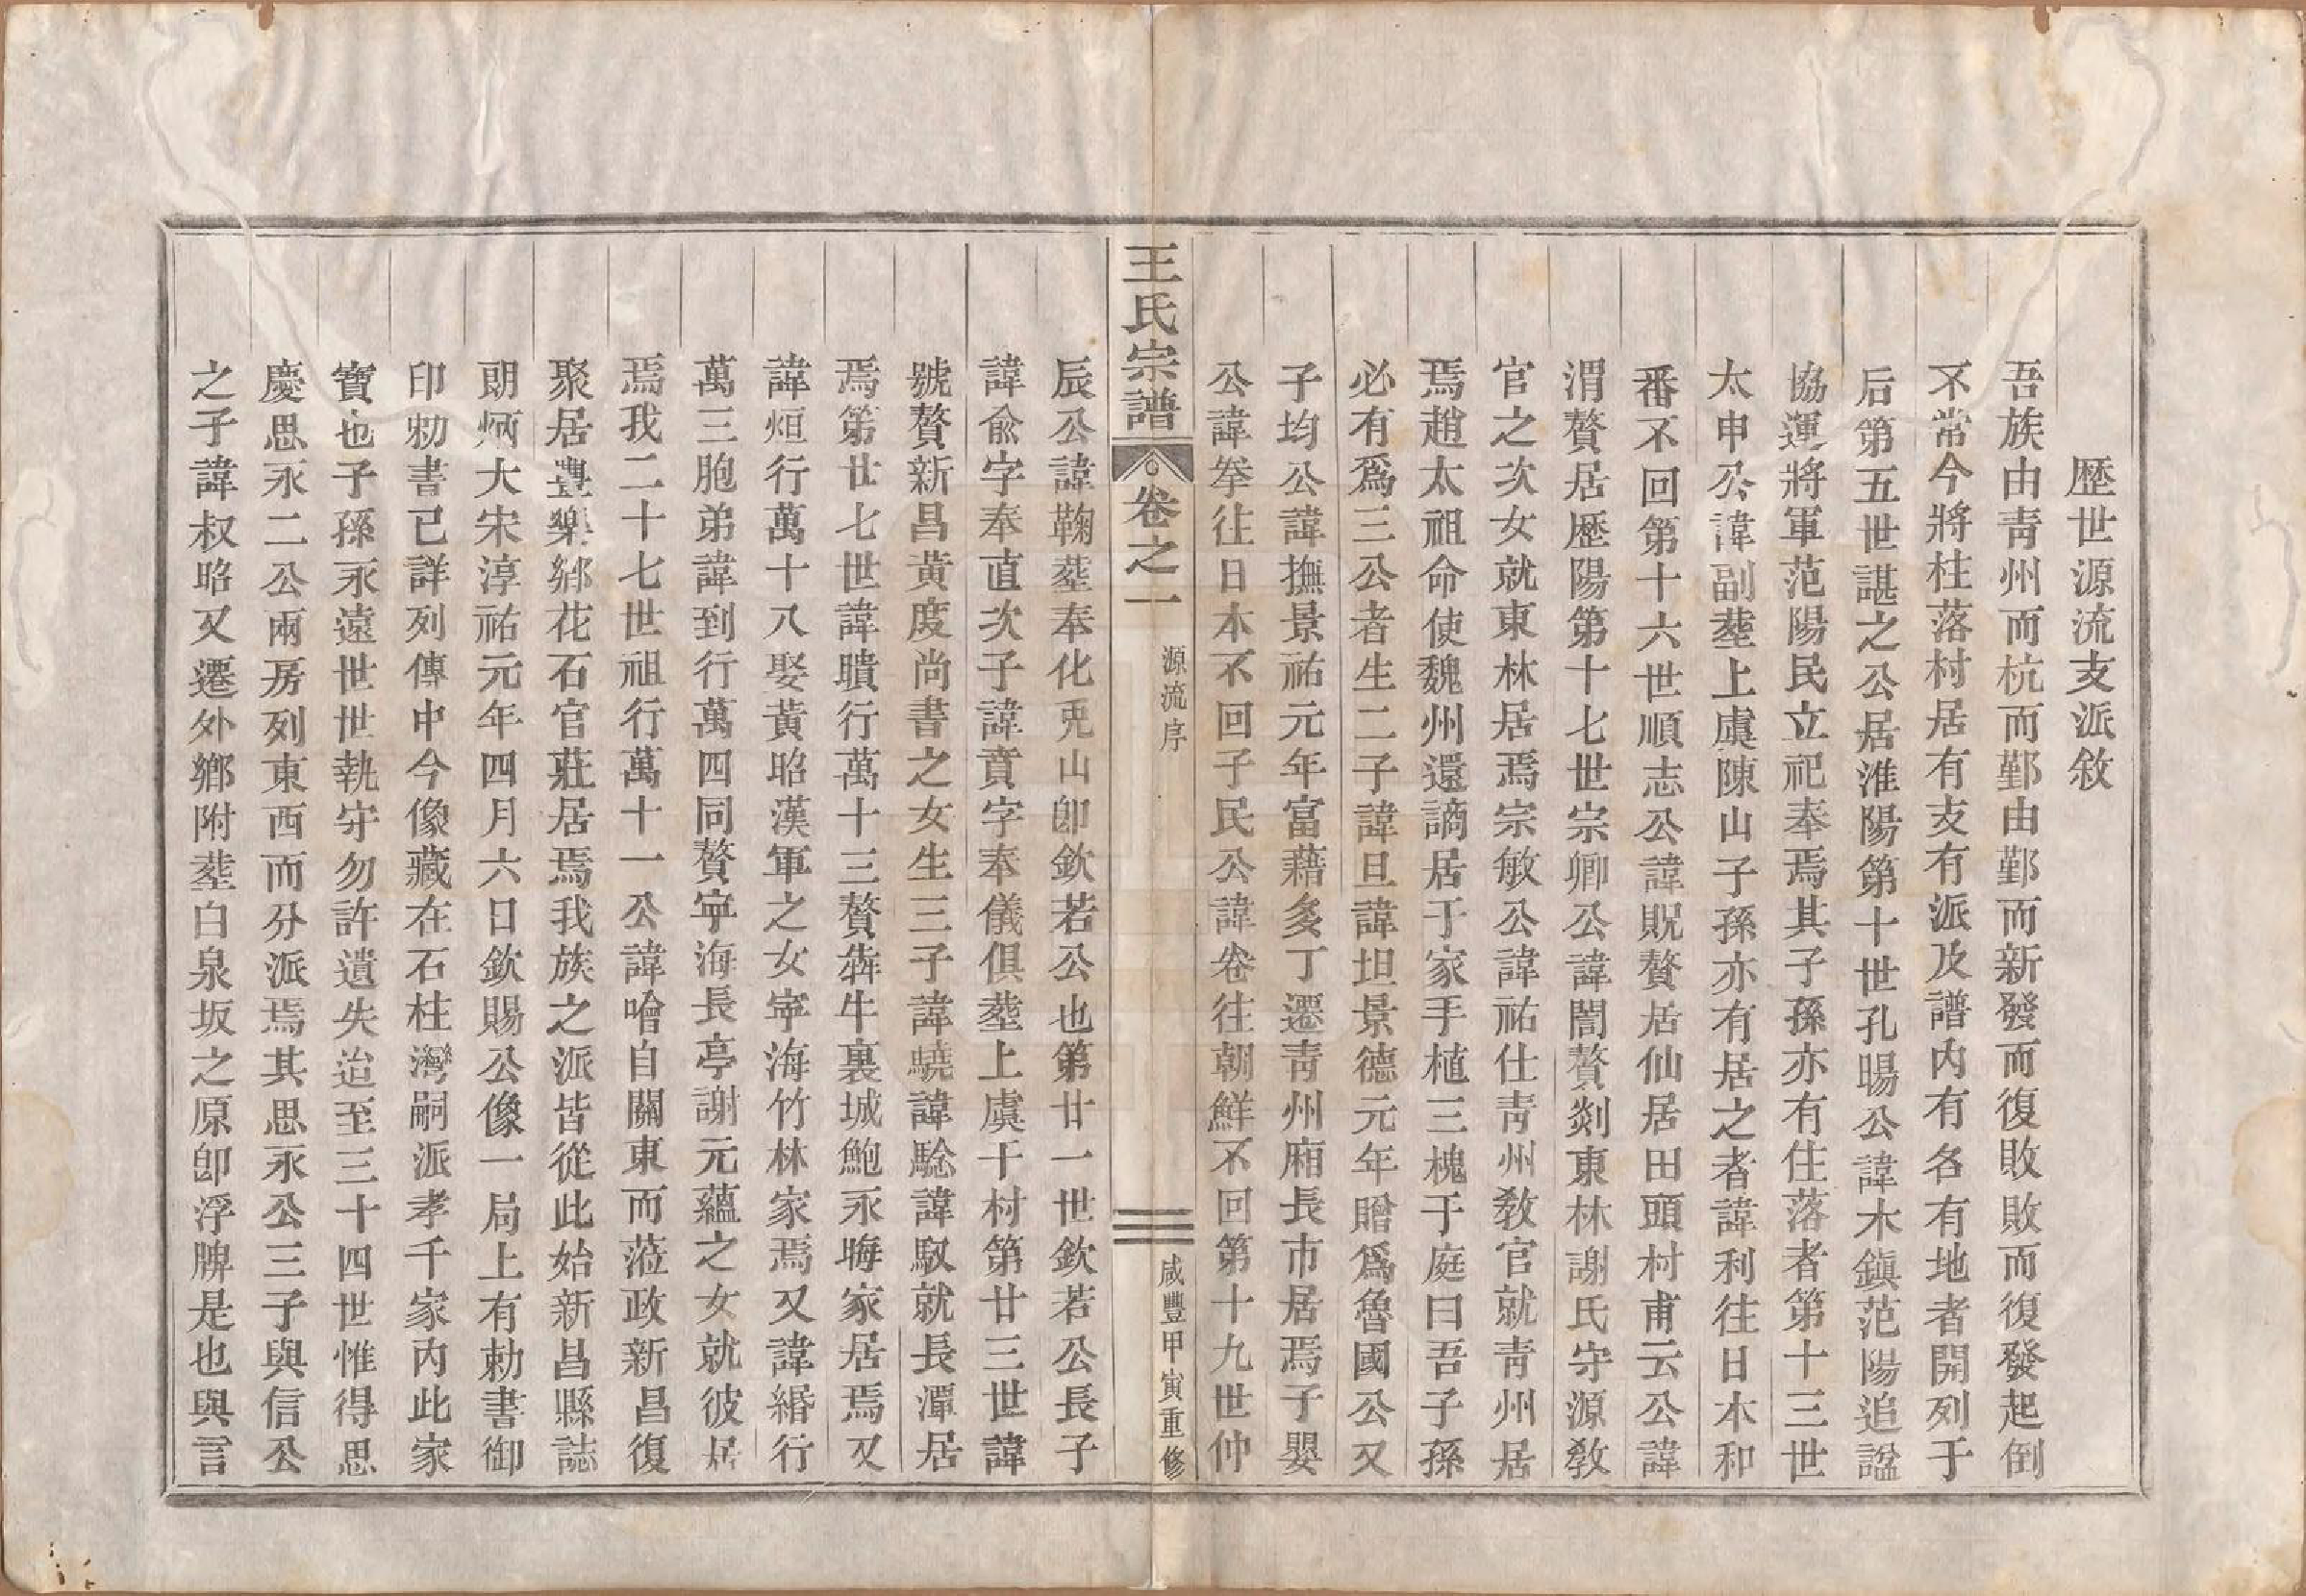 歷世源流支派敘
吾族由靑州而杭而鄞由鄞而新發而復敗敗而復發起倒
不常今將柱落村居有支有派及譜内有各有地者開列于
后第五世諶之公居淮陽第十世孔暘公諱木鎭范陽追諡
協運將軍范陽民立祀奉焉其子孫亦有住落者第十三世
太申公諱副塟上虞陳山子孫亦有居之者諱利往日本和
番不回第十六世順志公諱貺贅居仙居田頭村甫云公諱
渭贅居歷陽第十七世宗卿公諱誾贅剡東林謝氏守源敎
官之次女就東林居焉宗敏公諱祐仕靑州敎官就靑州居
焉趙太祖命使魏州還謫居于家手植三槐于庭曰吾子孫
必有爲三公者生二子諱旦諱坦景德元年贈爲魯國公又
子均公諱撫景祐元年富藉多丁遷靑州廂長市居焉子嬰
公諱拳往日本不回子民公諱卷往朝鮮不回第十九世仲
王氏宗譜 卷之一 源流序 咸豐甲寅重修
辰公諱鞠塟奉化兎山卽欽若公也第廿一世欽若公長子
諱俞字奉直次子諱賁字奉儀俱塟上虞干村第廿三世諱
號贅新昌黄度尚書之女生三子諱曉諱騐諱馭就長潭居
焉第廿七世諱聵行萬十三贅犇牛裏城鮑永晦家居焉又
諱烜行萬十八娶黄昭漢軍之女寧海竹林家焉又諱緡行
萬三胞弟諱到行萬四同贅寧海長亭謝元蘊之女就彼居
焉我二十七世祖行萬十一公諱噲自關東而蒞政新昌復
聚居豐樂鄉花石官莊居焉我族之派皆從此始新昌縣誌
朗炳大宋淳祐元年四月六日欽賜公像一局上有勅書御
印勅書已詳列傳中今像藏在石柱灣嗣派孝千家内此家
寶也子孫永遠世世執守勿許遺失迨至三十四世惟得思
慶思永二公兩房列東西而分派焉其思永公三子與信公
之子諱叔昭又遷外鄉附塟白泉坂之原卽浮牌是也與言